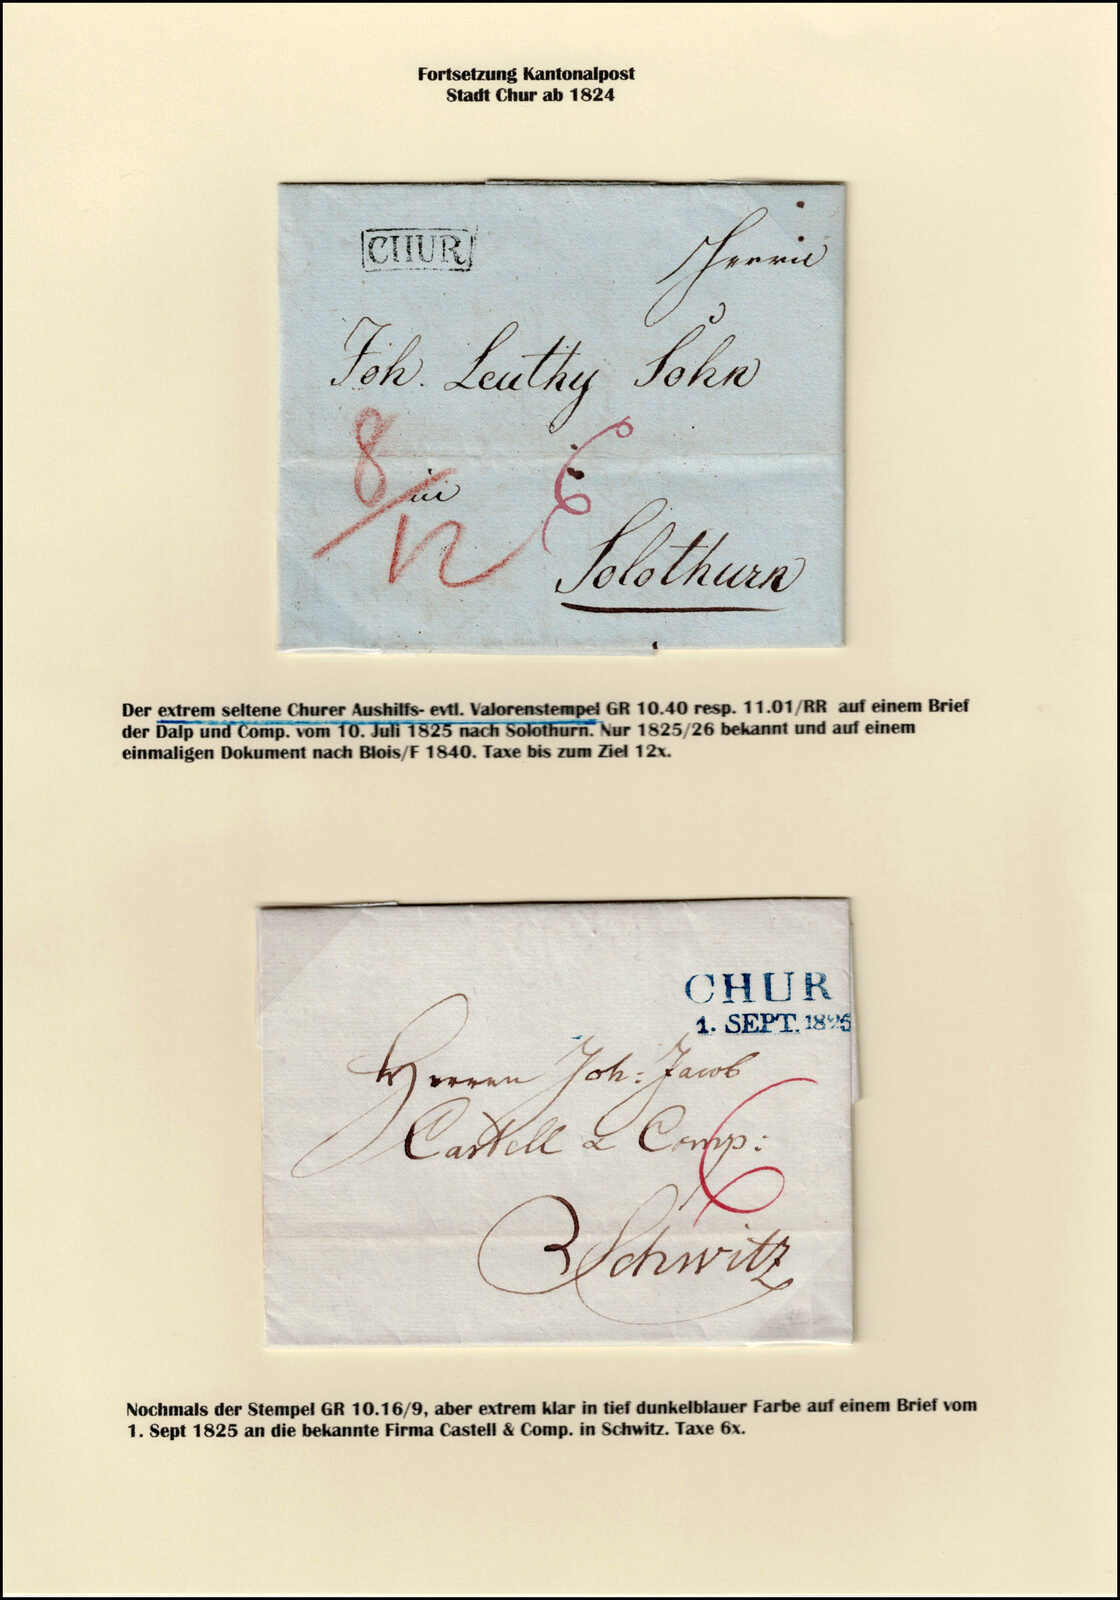 Fortsetzung Kantonalpost
Stadt Chur ab 1824
CHUR
Herrn
Joh. Leuthy Sohn
8/12
in
6
Solothurn
Der extrem seltene Churer Aushilfs- evtl. Valorenstempel GR 10.40 resp. 11.01/RR auf einem Brief
der Dalp und Comp. vom 10. Juli 1825 nach Solothurn. Nur 1825/26 bekannt und auf einem
einmaligen Dokument nach Blois/F 1840. Taxe bis zum Ziel 12x.
CHUR
1. SEPT. 1825
Herren Joh: Jacob
Castell & Comp:
6
Schwitz
Nochmals der Stempel GR 10.16/9, aber extrem klar in tief dunkelblauer Farbe auf einem Brief vom
1. Sept 1825 an die bekannte Firma Castell & Comp. in Schwitz. Taxe 6x.